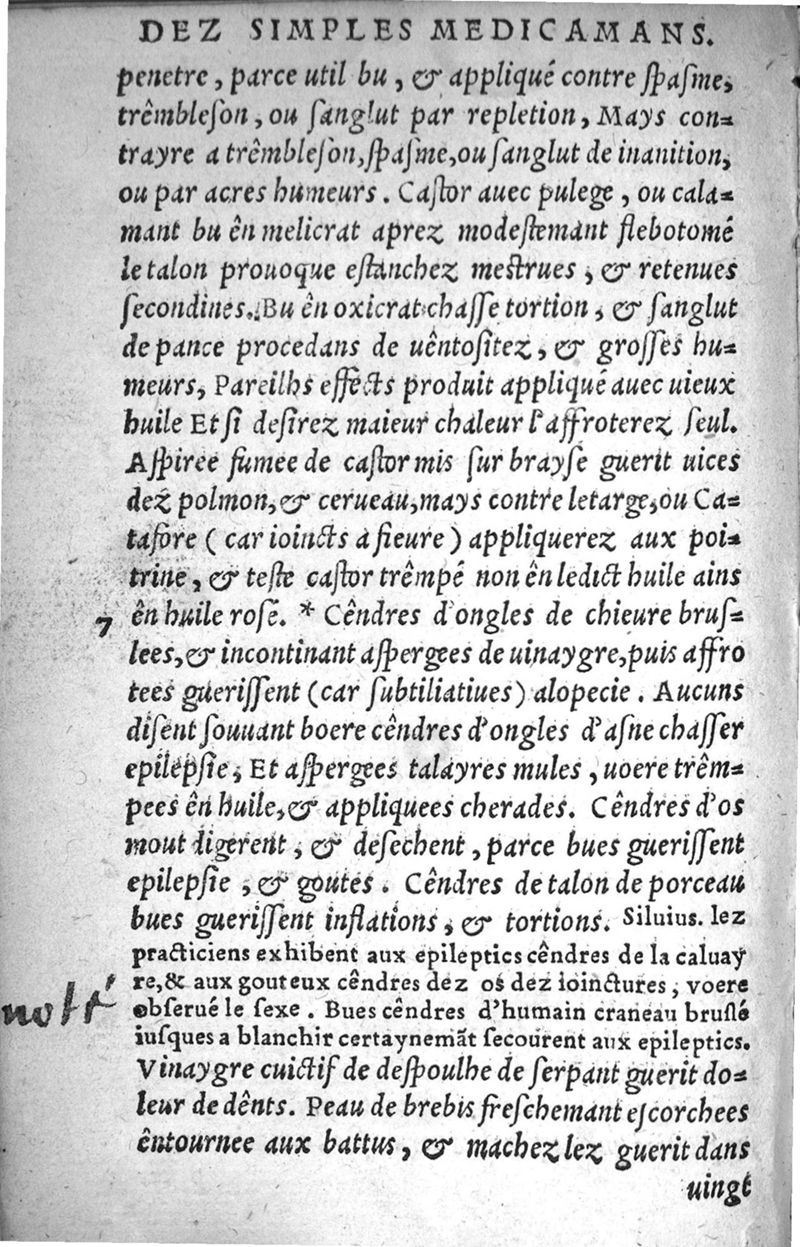 DEZ SIMPLES MEDICAMANS.
penetre, parce util bu, & appliqué contre ſpaſme,
trêmbleſon, ou ſanglut par repletion, Mays con=
trayre a trêmbleſon, ſpaſme, ou ſanglut de inanition,
ou par acres humeurs. Caſtor auec pulege, ou cala=
mant bu ên melicrat aprez modeſtemant flebotomé
le talon prouoque eſtanchez meſtrues, & retenues
ſecondines. Bu ên oxicrat chaſſe tortion, & ſanglut
de pance procedans de uêntoſitez, & groſſes hu=
meurs, Pareilhs effects produit appliqué auec uieux
huile Et ſi deſirez maieur chaleur l'affroterez ſeul.
Aſpiree fumee de caſtor mis ſur brayſe guerit uices
dez polmon, & cerueau, mays contre letarge, ou Ca=
tafore ( car ioincts a fieure ) appliquerez aux poi=
trine, & teſte caſtor trêmpé non ên ledict huile ains
7 ên huile roſé. * Cêndres d'ongles de chieure bruſ=
lees, & incontinant aſpergees de uinaygre, puis affro
tees gueriſſent (car ſubtiliatiues) alopecie. Aucuns
diſent ſouuant boere cêndres d'ongles d'aſne chaſſer
epilepſie, Et aſpergees talayres mules, uoere trêm=
pees ên huile, & appliquees cherades. Cêndres d'os
mout digerent, & deſechent, parce bues gueriſſent
epilepſie, & goutes. Cêndres de talon de porceau
bues gueriſſent inflations, & tortions. Siluius. lez
practiciens exhibent aux epileptics cêndres de la caluay
re, & aux gouteux cêndres dez os dez ioinctures, voere
obſerué le ſexe. Bues cêndres d'humain craneau bruſlé
iuſques a blanchir certaynemãt ſecourent aux epileptics.
Vinaygre cuictif de deſpoulhe de ſerpant guerit do=
leur de dênts. Peau de brebis freſchemant eſcorchees
êntournee aux battus, & machez lez guerit dans
uingt